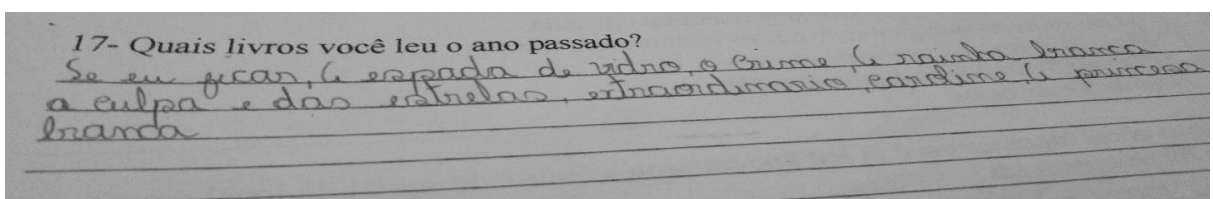 17- Quais livros você leu o ano passado?
Se eu ficar, a espada de vidro, o crime, a rainha branca
a culpa e das estrelas, extraordinario, caroline, a princesa
branda